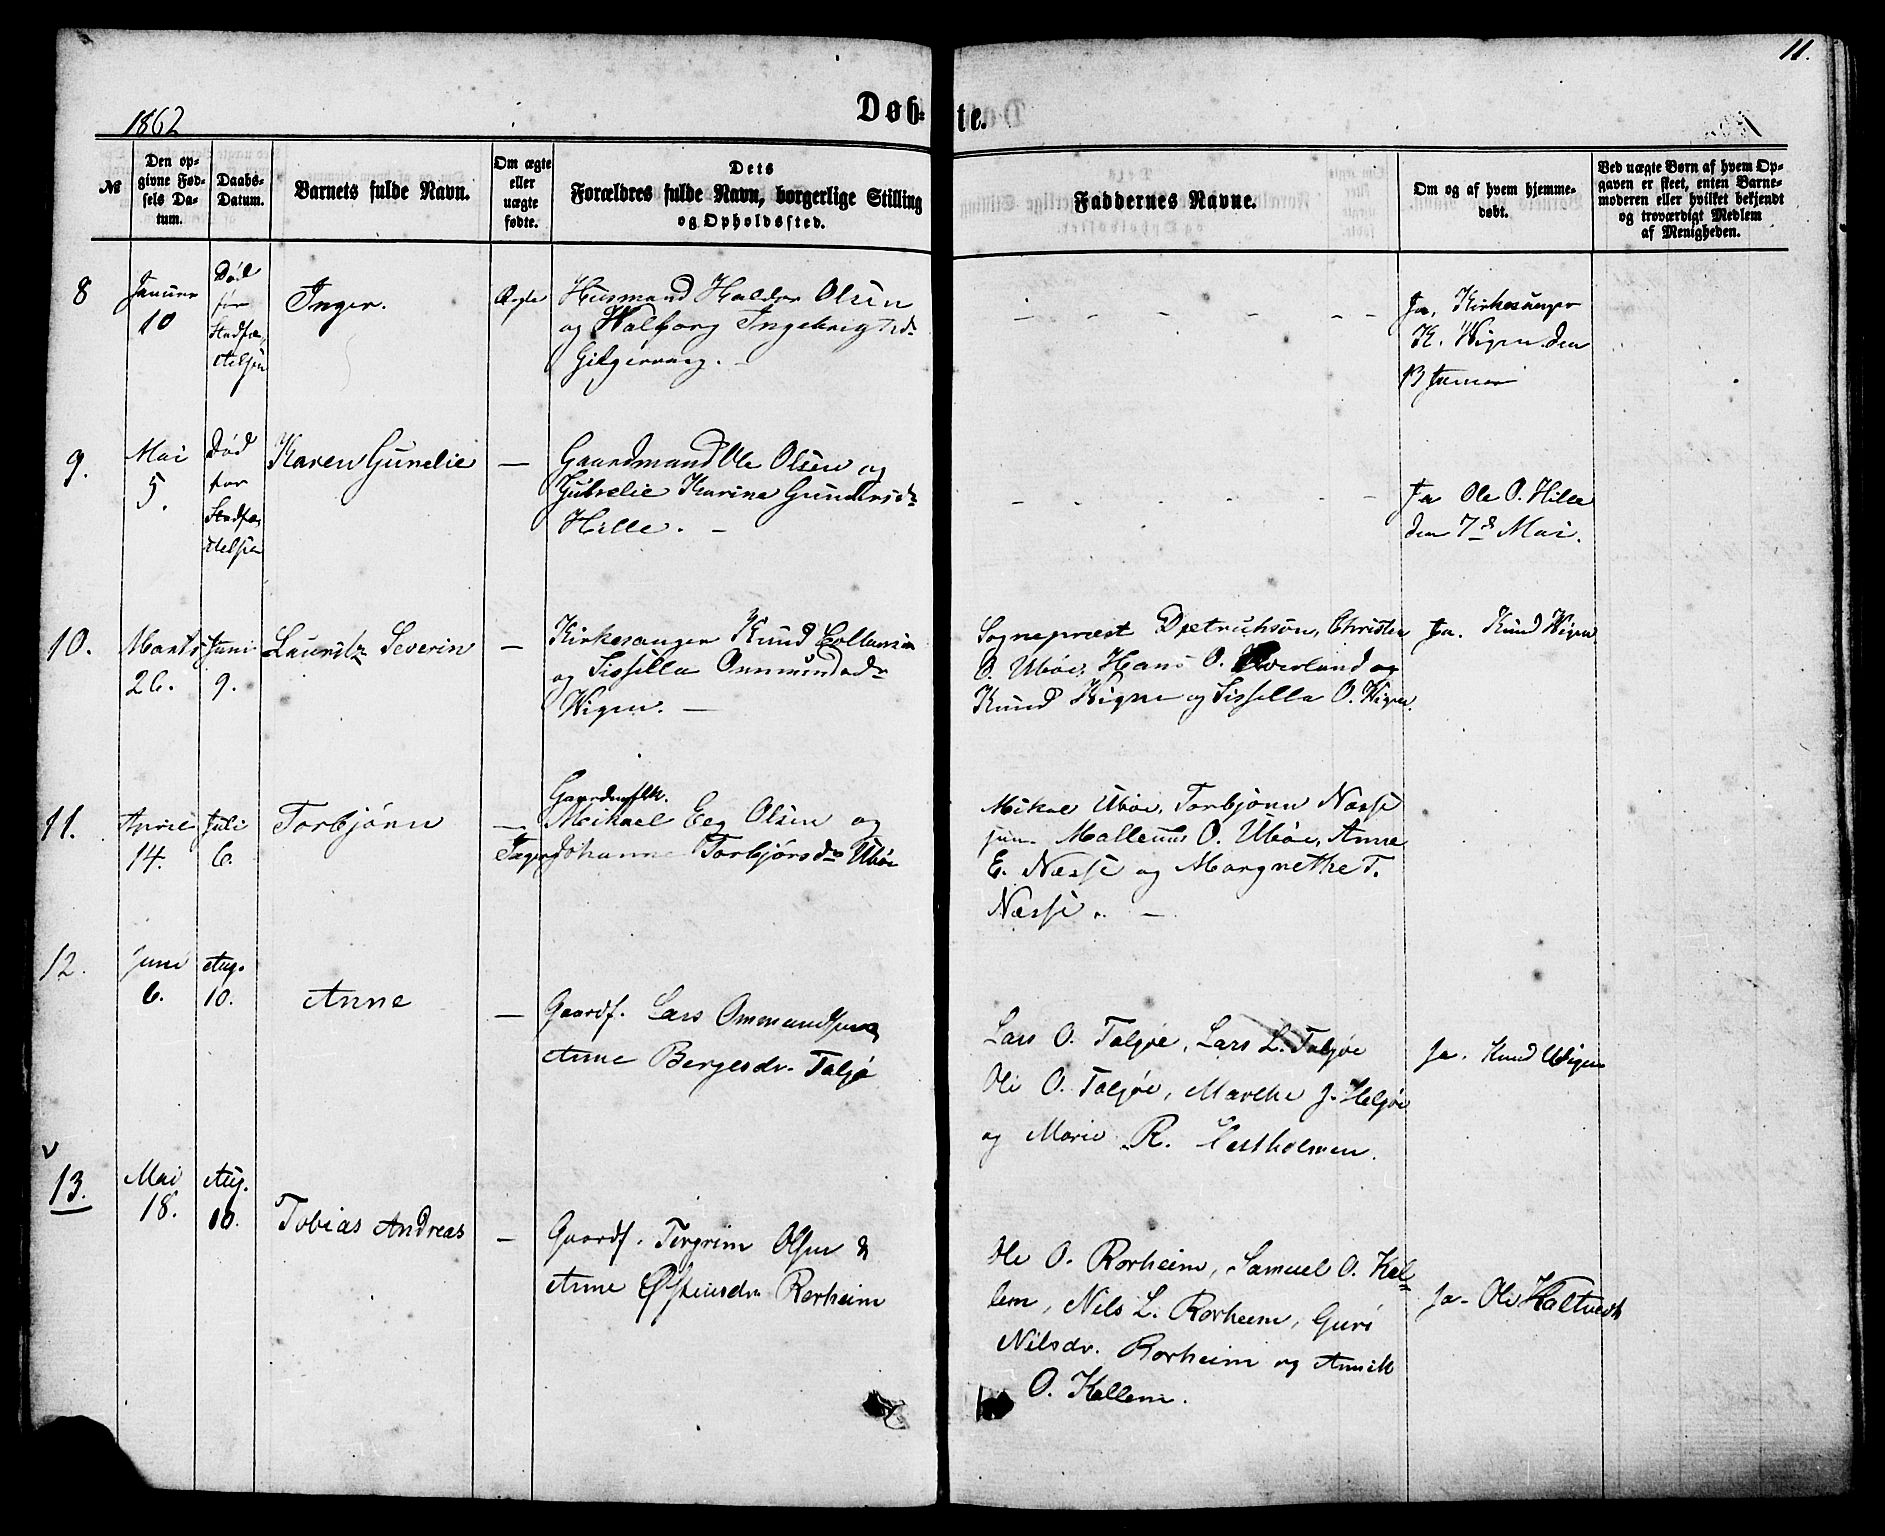 11.
1862
Døb-te.
№
Den opgivne Fødsels Datum.
Daabs-Datum.
Barnets fulde Navn.
Om ægte eller uægte fødte.
Dets Forældres fulde Navn, borgerlige Stilling og Opholdssted.
Faddernes Navne.
Om og af hvem hjemmedøbt.
Ved uægte Børn af hvem Opgaven er skeet, enten Barnemoderen eller hvilket bekjendt og troværdigt Medlem af Menigheden.
8
Januar 10
Død før Stadfæstelsen
Inger.
Ægte
Husmand Haldor Olsen
og Walborg Ingebrigtsd.
Ja, Kirkesanger
K. Wigen den
13 Januar
9.
Mai 5.
Død før Stadfæstelsen
Karen Gunelie
—
Gaardmand Ole Olsen og
Karine Gundersdr
Hille. —
Ja Ole O. Hille
den 7d Mai.
10.
Marts 26.
Juni 9.
Lauritz Severin
—
Kirkesanger Knud
og Sissella Ommundsdr
Wigen. —
Sognepræst Dietrichson, Christen
O. Ubøe, Hans O. Øverland og
Knud Wigne og Sissella O. Wigen.
Ja. Knud Wigen
11.
April 14.
Juli 6.
Torbjørn
—
Gaardmflk.
Mikael Eeg Olsen og
Johanne Torbjørsdr Ubøe
Mikal Ubøe, Torbjønn Næsse
jun. O. Ubøe, Anne
E. Næsse og Margrethe T.
Næsse. —
12.
Juni 6.
Aug. 10.
Anne
—
Gaardf. Lars Ommundsen
Anne Bergesdr. Taljø
Lars O. Taljøe, Lars L. Taljøe
Ole O. Taljøe, Marthe J. Heljøe
og Marie R. Vestholmen.
Ja. Knud Wigen
13.
Mai 18.
Aug. 10.
Tobias Andreas
—
Gaardf. Tergrim Olsen &
Anne Østensdr Rørheim
Ole O. Rorheim, Samuel O. Kal-
lem, Nils L. Rorheim, Guri
Nilsdr. Rorheim og
O. Kallem.
Ja. Ole Haltvedt